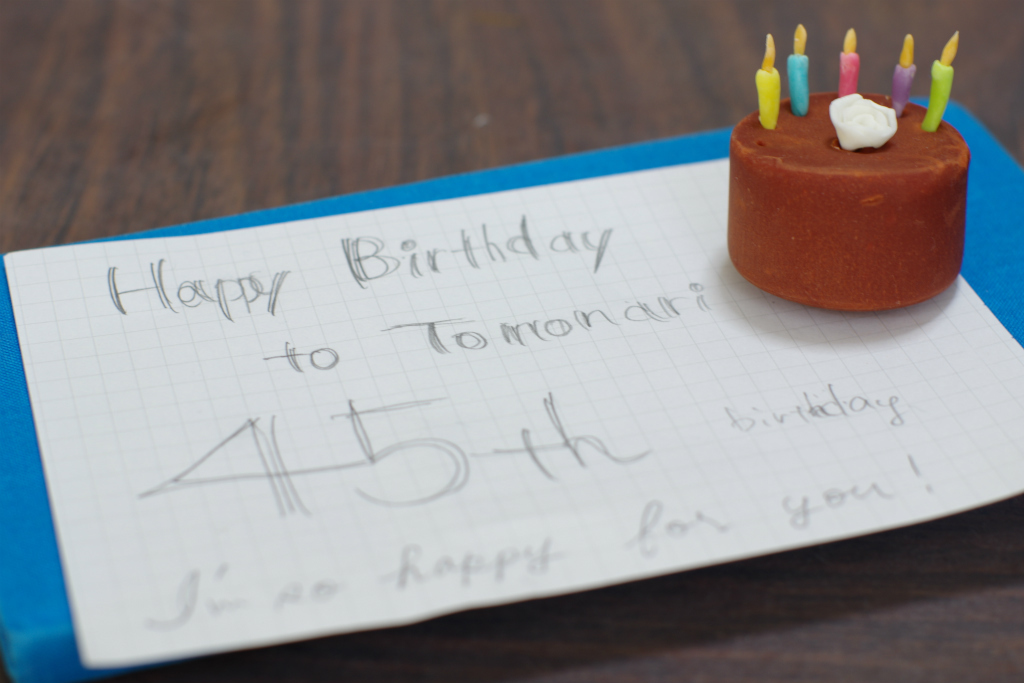 Happy Birthday
to Tomonari
45th birthday
I'm so happy for you!